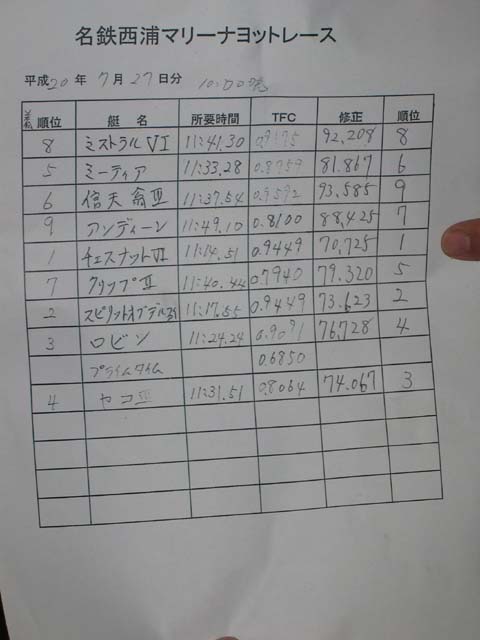 名鉄西浦マリーナヨットレース
平成20年 7月27日分 10:00
順位 艇名 所要時間 TFC 修正 順位
8 ミストラルVI 11:41.30 92,208 8
5 ミーティア 11:33.28 0.8759 81.867 6
6 信天翁Ⅲ 11:37.54 0.9592 93,585 9
9 アンディーン 11:49.10 0.8100 88,425 7
1 チェスナットVI 11:14.51 0.9449 70,725 1
7 クリップⅡ 11:40.44 0.7940 79.320 5
2 スピリットオブデル 11:17.55 0.9449 73.623 2
3 ロビン 11:24.24 0.9091 76,728 4
プライムタイム 0.6850
4 ヤコⅢ 11:31.51 0.8064 74.067 3